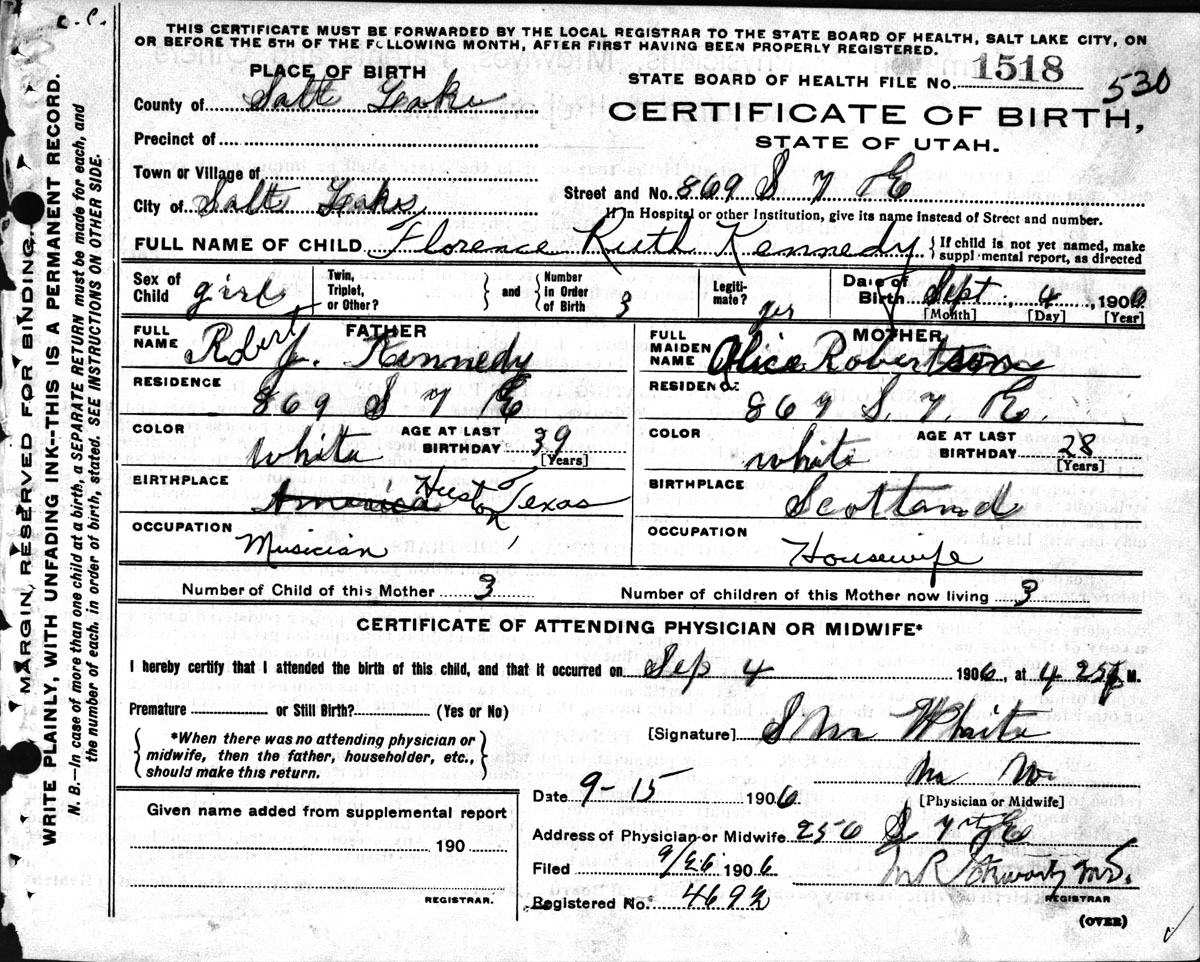 C. C.
THIS CERTIFICATE MUST BE FORWARDED BY THE LOCAL REGISTRAR TO THE STATE BOARD OF HEALTH, SALT LAKE CITY, ON
OR BEFORE THE 5TH OF THE FOLLOWING MONTH, AFTER FIRST HAVING BEEN PROPERLY REGISTERED.
PLACE OF BIRTH
STATE BOARD OF HEALTH FILE No. 1518
530
County of Salt Lake
CERTIFICATE OF BIRTH,
STATE OF UTAH.
Precinct of
Town or Village of
Street and No. 869 S 7 E
City of Salt Lake
If in Hospital or other Institution, give its name instead of Street and number.
FULL NAME OF CHILD Florence Ruth Kennedy { If child is not yet named, make
suppl·mental report, as directed
Sex of Child girl
Twin, Triplet, or Other?
and
Number in Order of Birth 3
Legitimate? yes
Date of Birth Sept 4 1906
[Month] [Day] [Year]
FATHER
FULL NAME Robert J. Kennedy
RESIDENCE
869 S 7 E
COLOR White
AGE AT LAST BIRTHDAY 39
[Years]
BIRTHPLACE
America Huston Texas
OCCUPATION
Musician
MOTHER
FULL MAIDEN NAME Alice Robertson
RESIDENCE
869 S. 7. E.
COLOR White
AGE AT LAST BIRTHDAY 28
[Years]
BIRTHPLACE
Scotland
OCCUPATION
Housewife
Number of Child of this Mother 3
Number of children of this Mother now living 3
CERTIFICATE OF ATTENDING PHYSICIAN OR MIDWIFE*
I hereby certify that I attended the birth of this child, and that it occurred on Sep 4 1906, at 4 25 P M.
Premature or Still Birth? (Yes or No)
[Signature] White
*When there was no attending physician or
midwife, then the father, householder, etc.,
should make this return.
[Physician or Midwife]
Date 9-15 1906
Given name added from supplemental report
190
REGISTRAR.
Address of Physician or Midwife 256 S 7th E
Filed 9/26 1906
Registered No. 4692
REGISTRAR
(OVER)
MARGIN RESERVED FOR BINDING.
WRITE PLAINLY, WITH UNFADING INK---THIS IS A PERMANENT RECORD.
N. B.—In case of more than one child at a birth, a SEPARATE RETURN must be made for each, and
the number of each, in order of birth, stated. SEE INSTRUCTIONS ON OTHER SIDE.